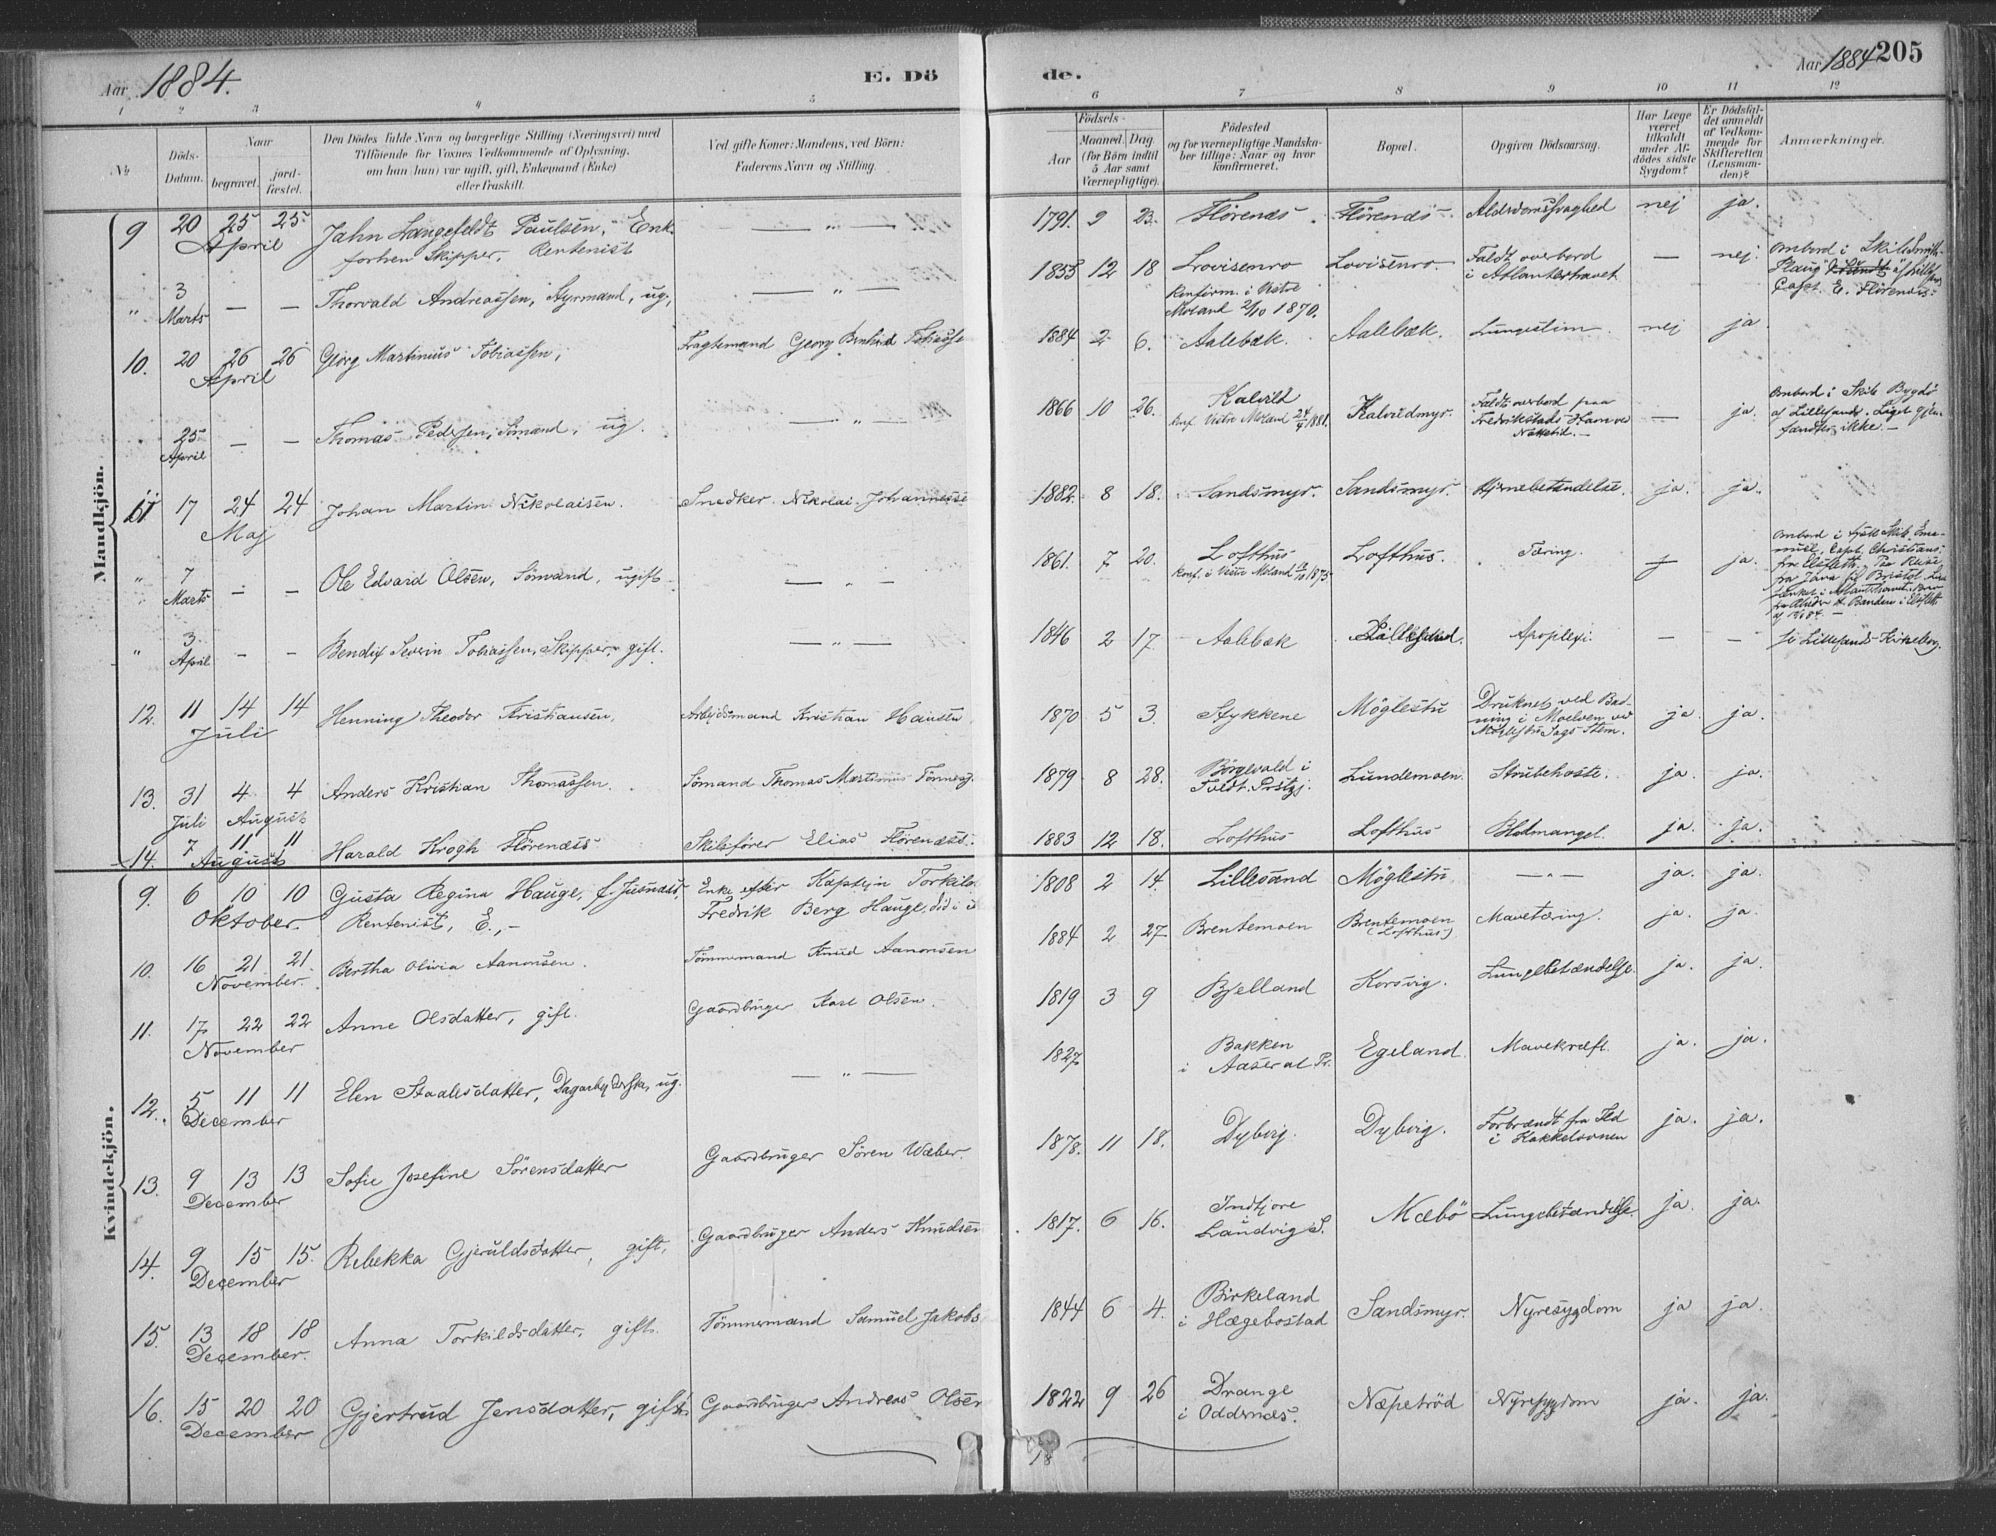 Aar 1884. E. Dö
1 2 3 4 5
№
Döds-Datum.
Naar
begravet.
jord-fæstet.
Den Dödes fulde Navn og borgerlige Stilling (Næringsvei) med
Tilföiende for Voxnes Vedkommende af Oplysning,
om han (hun) var ugift, gift, Enkemand (Enke)
eller fraskilt.
Ved gifte Koner: Mandens, ved Börn:
Faderens Navn og Stilling.
Mandkjön.
9 20 25 25 Jahn Langefeldt Paulsen, Enk. — " —
April forhen Skipper, Rentenist
" 3 Marts — — Thorvald Andreassen, Styrmand, ug., — " —
10. 20 26 26 Georg Martinius Tobiassen, Fragtemand Georg Tobiasse
April
25 April — — Thomas Pedersen, Sömand, ug. — " —
11 17 24 24 Johan Martin Nikolaisen. Snedker Nikolai Johannesse
Maj
" 7 Marts — — Ole Edvard Olsen, Sömand, ugift — " —
" 3 April — — Bendix Severin Tobiassen, Skipper, gift. — " —
12. 11 14 14 Henning Theodor Kristiansen, Arbejdsmand Kristian Hansen
Juli
13. 31 4 4 Anders Kristian Thomassen. Sömand Thomas Martinius
Juli August
14. 7 11 11 Harald Krogh Flörenæss Skibsförer Elias Flörenæss.
August
Kvindekjön.
9. 6 10 10 Gusta Regina Hauge, f. Enke efter Kaptejn Torkild
Oktober Rentenist, E., — Fredrik Berg Hauge,
10. 16 21 21 Bertha Olivia Aanonsen. Tömmermand Knud Aanonsen
November
11. 17 22 22 Anne Olsdatter, gift. Gaardbruger Karl Olsen.
November
12. 5 11 11 Elen Staalesdatter, ug. — " —
December
13. 9 13 13 Sofie Josefine Sörensdatter Gaardbruger Sören Wæber.
December
14. 9 15 15. Rebekka Gjeruldsdatter, gift, Gaardbruger Anders Knudsen
December
15. 13 18 18 Anna Torkildsdatter, gift. Tömmermand Samuel Jakobs
December.
16. 15 20 20 Gjertrud Jensdatter, gift. Gaardbruger Andreas Olsen
December
de. Aar 1884 205
6 7 8 9 10 11 12
Födsels-
Aar
Maaned. Dag.
(for Börn indtil
5 Aar samt
Værnepligtige).
Födested
og for værnepligtige Mandska-
ber tillige: Naar og hvor
konfirmeret.
Bopæl.
Opgiven Dödsaarsag.
Har Læge
været
tilkaldt
under Af-
dödes sidste
Sygdom?
Er Dödsfal-
det anmeldt
af Vedkom-
mende for
Skifteretten
(Lensman-
den)?
Anmærkninger.
1791. 9 23. Flörenæs. Flörenæs. Alderdomssvaghed nej ja.
1853 12 18 Lovisenro Lovisenro. Faldt overbord — nej. Ombord i
konfirm. i Vestre i Atlanterhavet
Moland 2/10 1870. Capt. E. Flörenæs.
1884 2 6. Aalebæk. Aalebæk. nej ja
1866 10 26. Kalvild Kalvildmyr. Faldt overbord paa — ja. Ombord i Skib Bygdö
konf. Vestre Moland 24/4 1881. Fredrikstads Havn ved af Lillesand. Liget gjen-
Nattetid. — fandtes ikke. —
1882. 8 18. Sandsmyr. Sandsmyr. Hjernebetændelse. ja. ja.
1861. 7 20. Lofthus Lofthus. Tæring. — ja.
konf. i Vestre Moland 1875 Capt. Christians,
fra Elsfleth. Paa Reise
fra Java til Bristol.
1846 2 17. Aalebæk Lillesand. Apoplexi. — — i Lillesands Kirkebog.
1870 5 3. Stykkene Möglestu Druknet ved Bad- ja. ja.
ning i Moelven ved
Möglestu Sags Stem.
1879 8 28. i Lundemoen. Strubehoste. ja. ja.
1883 12 18. Lofthus Lofthus Blodmangel. ja. ja.
1808 2 14. Lillesand Möglestu — " — ja. ja.
1884 2 27 Brentemoen Brentemoen Mavetæring. ja. ja.
(Lofthus)
1819 3 9 Bjelland Korsvig. Lungebetændelse. ja. ja.
1827 Bakken Egeland. Mavekræft. ja. ja.
i Aaseral Pr.
1878. 11 18. Dybvig. Dybvig. Forbrændt fra Ild ja. ja.
i Kakkelovnen
1817. 6 16. Indtjore Mæbö Lungebetændelse. ja. ja.
Landvig S.
1844 6 4. Birkeland Sandsmyr. Nyresygdom ja ja.
i Hægebostad
1822 9 26 Drange Næpetröd Nyresygdom ja. ja.
i Oddernes.
18